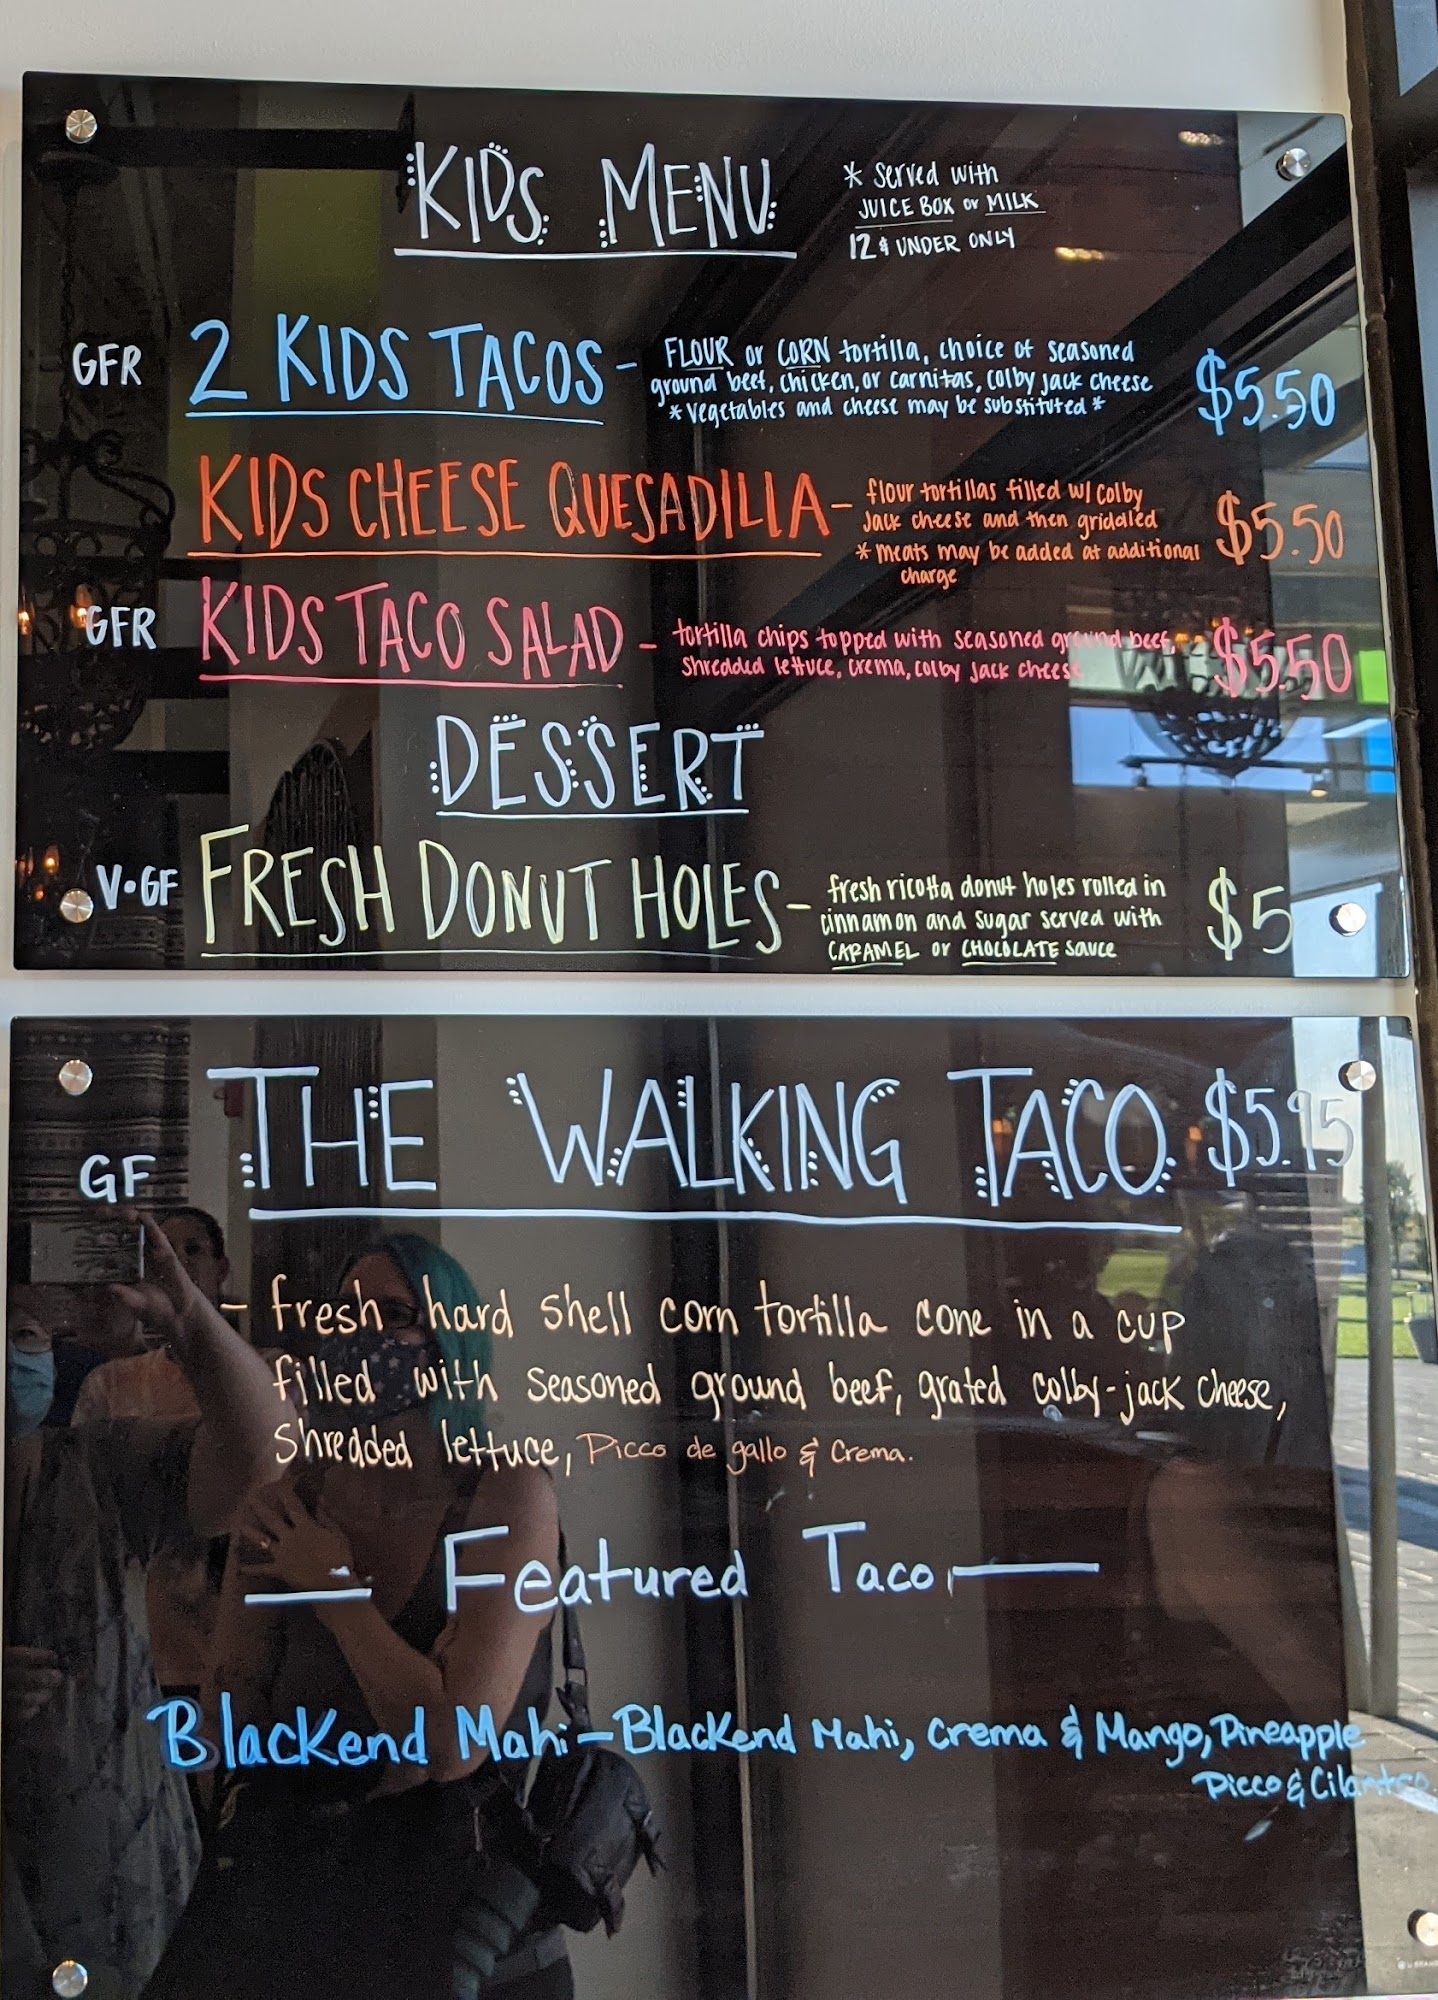 KIDS MENU
* served with
JUICE BOX or MILK
12 & UNDER ONLY
GFR 2 KIDS TACOS - FLOUR or CORN tortilla, choice of seasoned
ground beef, chicken, or carnitas, colby jack cheese
* vegetables and cheese may be substituted *
$5.50
KIDS CHEESE QUESADILLA - flour tortillas filled w/ colby
jack cheese and then griddled
* meats may be added at additional
charge
$5.50
GFR KIDS TACO SALAD - tortilla chips topped with seasoned ground beef,
shredded lettuce, crema, colby jack cheese
$5.50
DESSERT
V•GF FRESH DONUT HOLES - fresh ricotta donut holes rolled in
cinnamon and sugar served with
CARAMEL or CHOCOLATE sauce
$5
GF THE WALKING TACO $5.95
- fresh hard shell corn tortilla cone in a cup
filled with seasoned ground beef, grated colby-jack cheese,
shredded lettuce, Picco de gallo & Crema.
— Featured Taco —
Blackend Mahi - Blackend Mahi, Crema & Mango, Pineapple
Picco & Cilantro